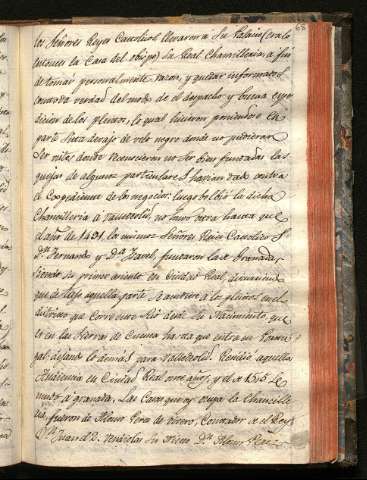 68
los Señores Reyes Catolicos llevaron a su Palacio (era lo
entonces la Casa del obispo) la Real Chancilleria a fin
de tomar personalmente razon, y quedar informados
con verdad del modo de el despacho y buena expe
dicion de los pleitos, lo qual hicieron poniendose en
parte secreta devajo de velo negro donde no pudieran
ser vistos, donde reconocieron no ser bien fundadas las
quejas de algunos particulares havian dado contra
el Expediente de los negocios: luego bolbió la dicha
Chancilleria a Valladolid, no huvo otra hasta que
el año de 1491. los mismos Señores Reies Catolicos Dn
Dn. Fernando y Da. Isavel, fundaron la de Granada,
siendo su primer asiento en Ciudad Real,
que de Tajo aquella parte se acudiese a los pleitos en el
distrito que corre este Rio desde su Nacimiento, que
es en las sierras de Cuenca hasta que entra en Portu
gal, dejando lo demás para Valladolid. Residio aquella
Audiencia en Ciudad Real onze años, y el de 1505 se
mudó a Granada. Las Casas que oy ocupa la Chancille
ria, fueron de Alonso Perez de Vivero, Contador de el Rey
Dn. Juan el 2. vendiolas su nieto Dn. Alonso Perez